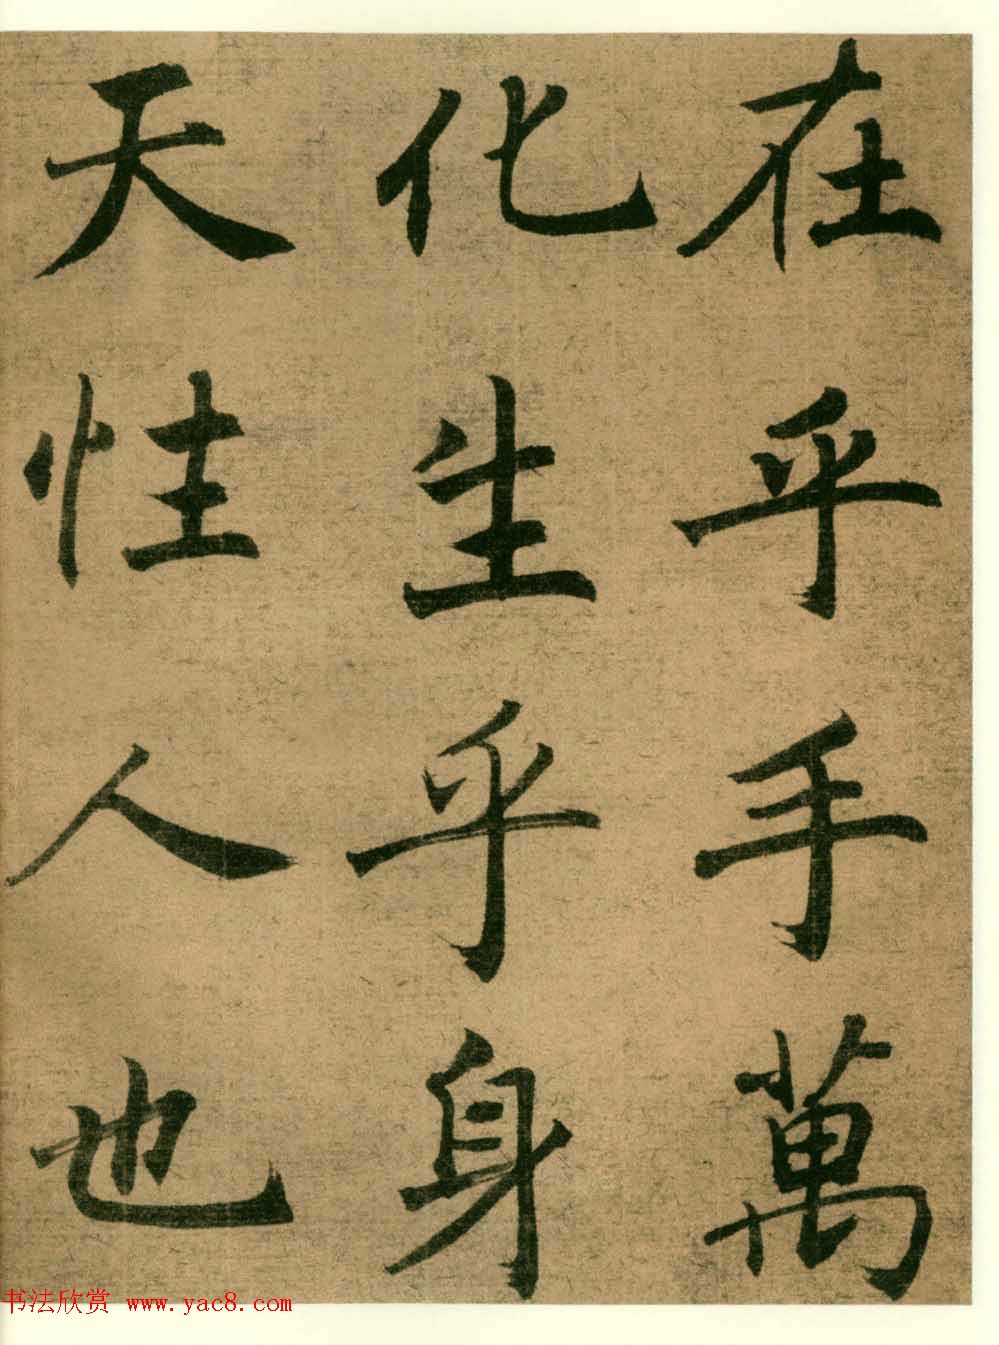 在乎手萬
化生乎身
天性人也
书法欣赏 www.yac8.com